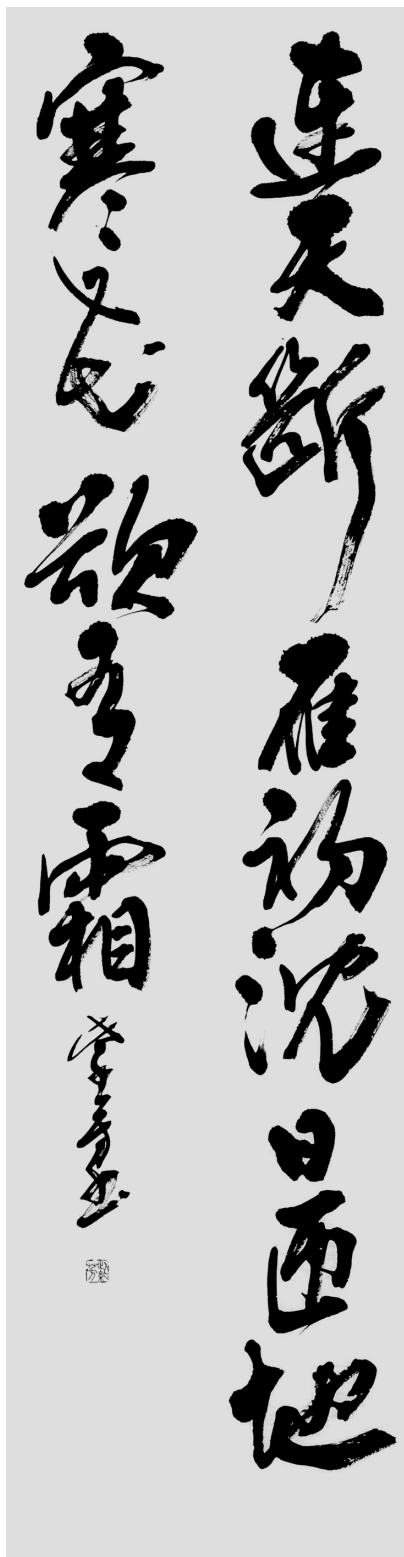 連天断雁初沈日匝地
寒花欲有霜
芳書